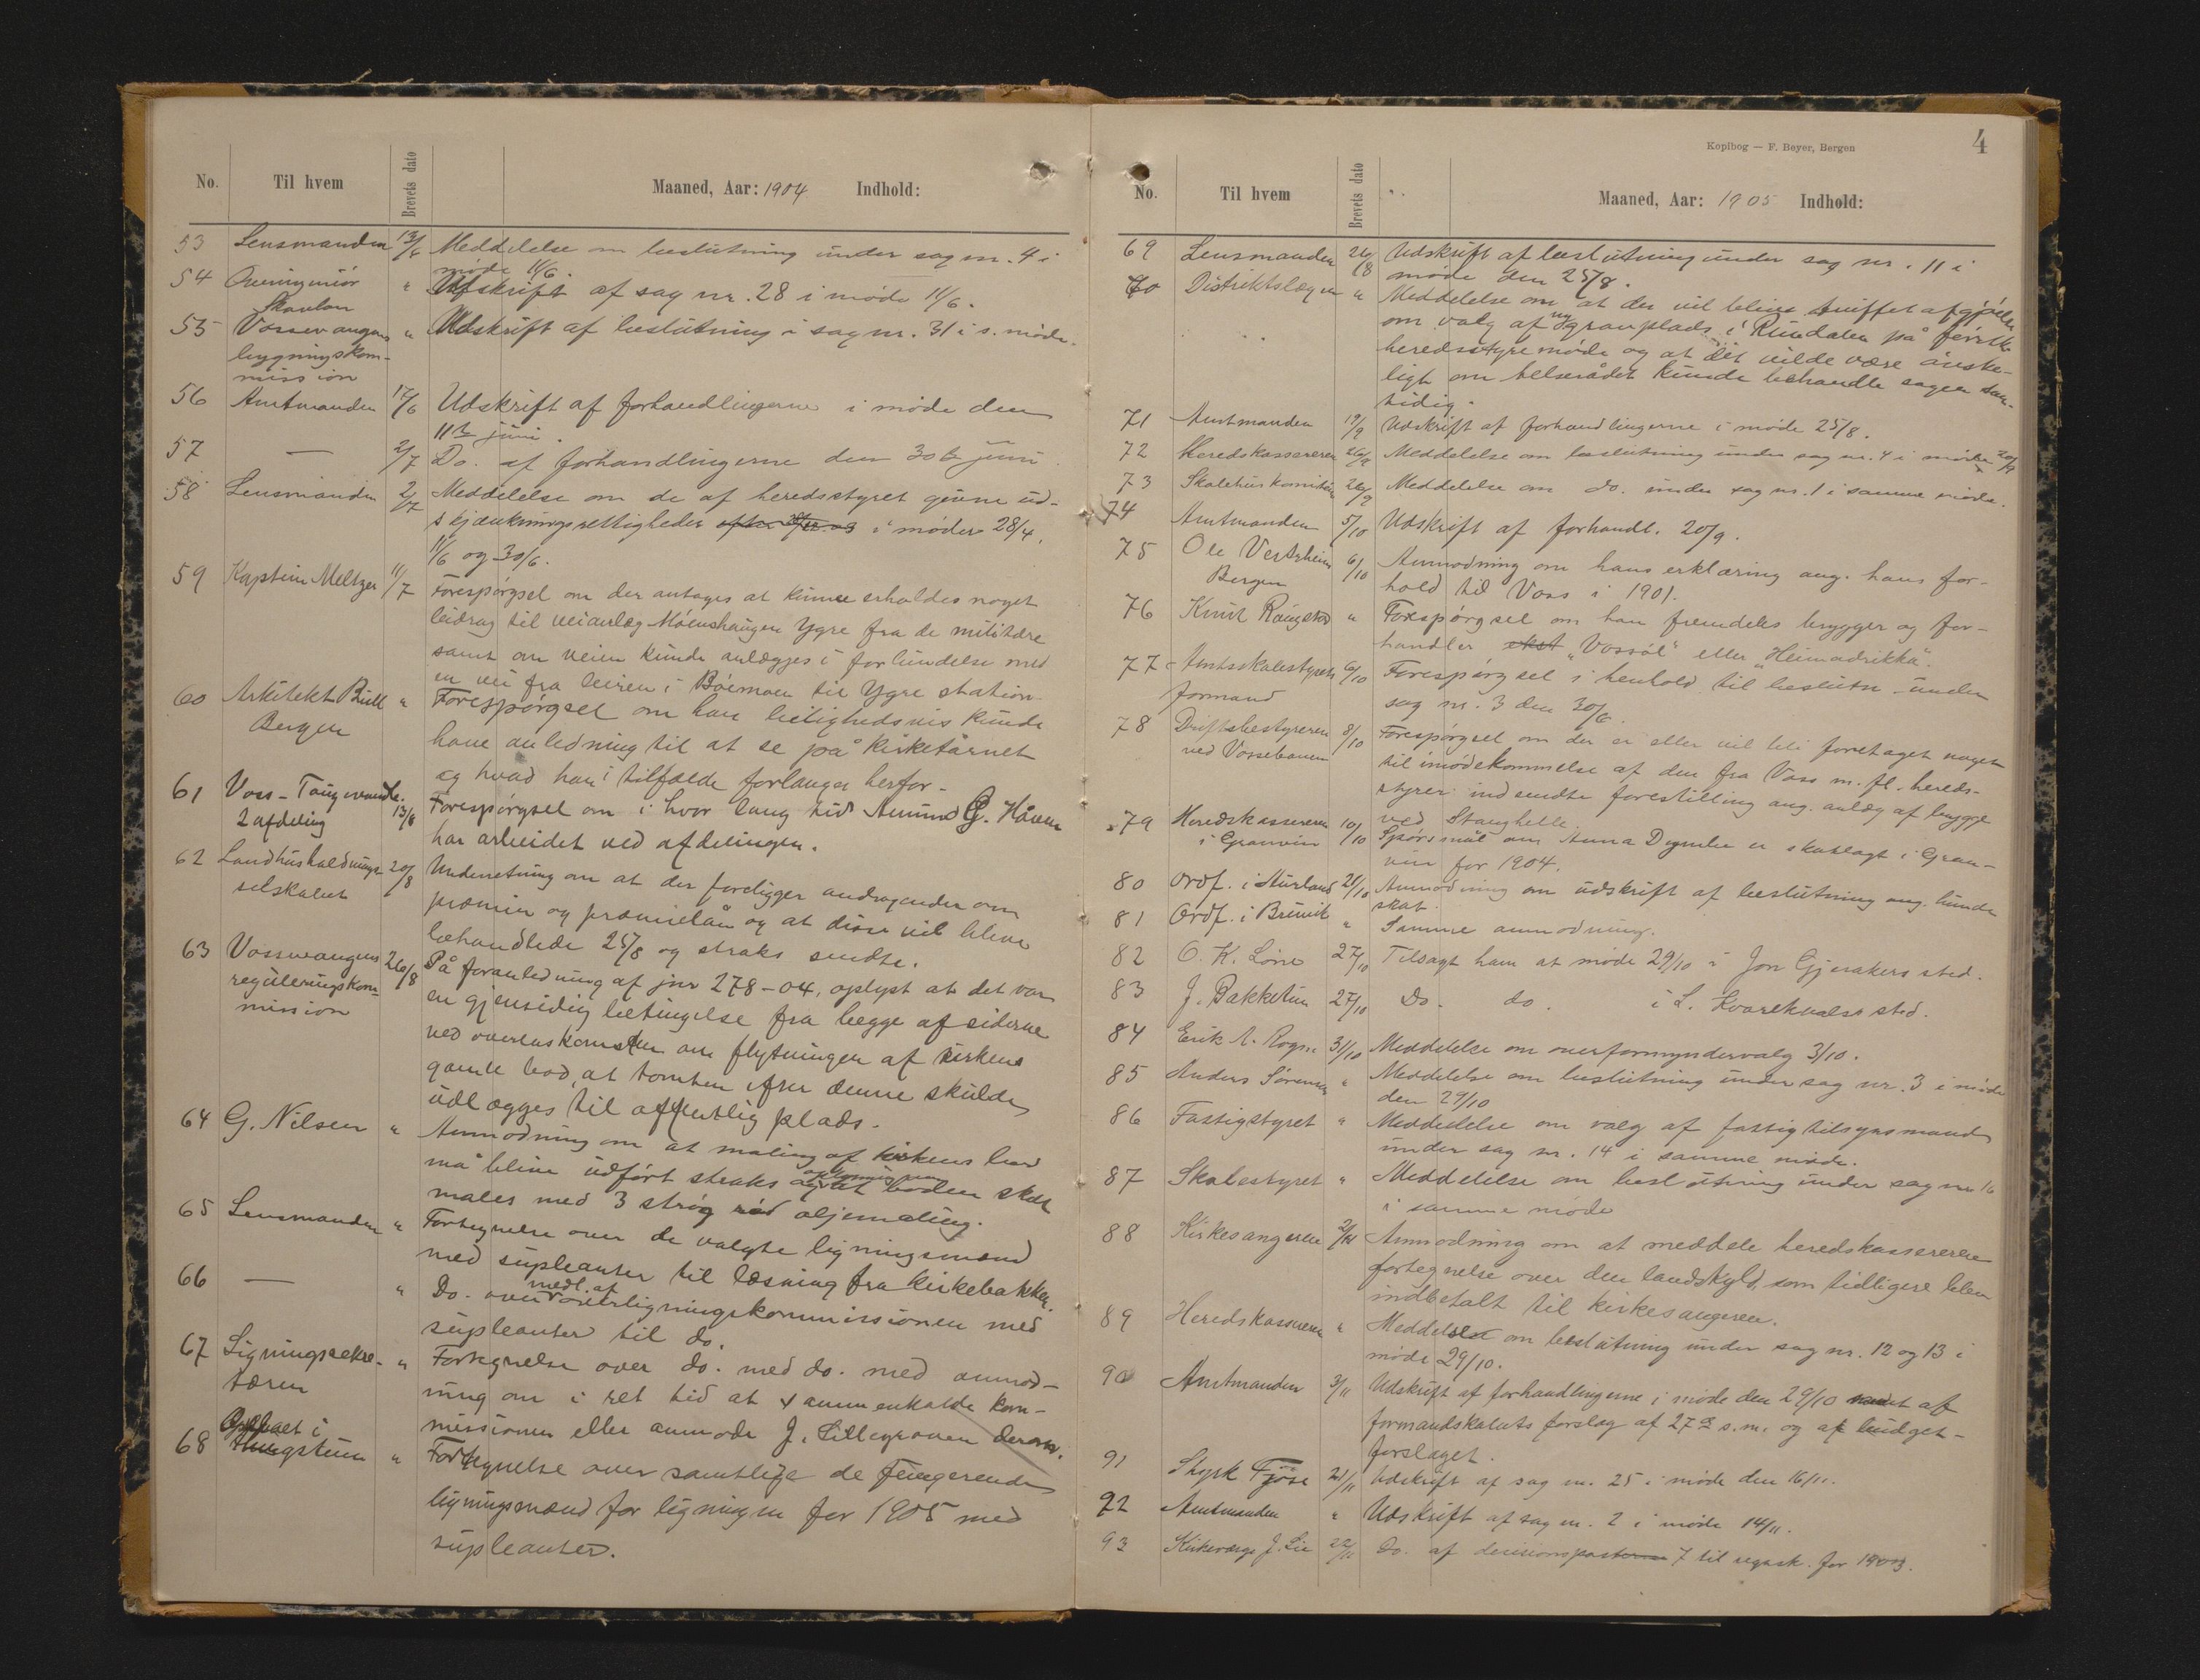 No. Til hvem Brevets dato Maaned, Aar: 1904 Indhold:
53 Lensmanden 13/6 Meddelelse om beslutning under sag nr. 4 i
møde 11/6.
54 Overingeniør " Udskrift af sag nr. 28 i møde 11/6.
Skavlan
55 Vossevangens " Udskrift af beslutning i sag nr. 31 i s. møde.
bygningskom-
mission
56 Amtmanden 17/6 Udskrift af forhandlingerne i møde den
11te juni.
57 — 2/7 Do. af forhandlingerne den 30te juni
58 Lensmanden 2/7 Meddelelse om de af heredsstyret givne ud-
skjænkningsrettigheder i møder 28/4,
11/6 og 30/6.
59 Kaptein Meltzer 11/7 Forespørgsel om der antages at kunne erholdes noget
bidrag til veianlæg Móenshaugen Ygre fra de militære
samt om veien kunde anlægges i forbindelse med
en vei fra leiren i Bómoen til Ygre station
60 Arkitekt Bull " Forespørgsel om han leilighedsvis kunde
Bergen have anledning til at se på kirketårnet
og hvad han i tilfælde forlanger herfor -
61 Voss-Taugevandb. 13/8 Forespørgsel om i hvor lang tid Amund G. Håven
2 afdeling har arbeidet ved afdelingen.
62 Landhusholdnings- 20/8 Underretning om at der foreligger andragender om
selskabet præmier og præmielån og at disse vil blive
behandlede 25/8 og straks sendte.
63 Vossevangens 26/8 På foranledning af jnr 278-04, oplyst at det var
reguleringskom- en gjensidig betingelse fra begge af siderne
mission ved overenskomsten om flytningen af kirkens
gamle bod, at tomten efter denne skulde
udlægges til offentlig plads.
64 G. Nilsen " Anmodning om at maling af kirkens bod
må blive udført straks at boden skal
males med 3 strøg rød oljemaling.
65 Lensmanden " Fortegnelse over de valgte ligningsmænd
med supleanter til læsning fra kirkebakken.
66 — " Do. over medl. af overligningskommissionen med
supleanter til do.
67 Ligningssekre- " Fortegnelse over do. med do. med anmod-
tæren ning om i ret tid at sammenkalde kom-
missionen eller anmode J. Lillegraven derom.
68 " Fortegnelse over samtlige de fungerende
ligningsmænd for ligningen for 1905 med
supleanter.
Kopibog — F. Beyer, Bergen 4
No. Til hvem Brevets dato Maaned, Aar: 1905 Indhold:
69 Lensmanden 26/8 Udskrift af beslutning under sag nr. 11 i
møde den 25/8.
70 Distriktslægen " Meddelelse om at der vil blive truffet afgjørelse
om valg af ny gravplads i Rundalen på første
heredsstyremøde og at det vilde være ønske-
ligt om helserådet kunde behandle sagen sam-
tidig.
71 Amtmanden 19/9 Udskrift af forhandlingerne i møde 25/8.
72 Heredskassereren 26/9 Meddelelse om beslutning under sag nr. 4 i møde 20/9
73 26/9 Meddelelse om do. under sag nr. 1 i samme møde.
74 Amtmanden 5/10 Udskrift af forhandl. 20/9.
75 Ole Vestrheim 6/10 Anmodning om hans erklæring ang. hans for-
Bergen hold til Voss i 1901.
76 Knut Rongstad " Forespørgsel om han fremdeles brygger og for-
handler "Vossøl" eller "Heimadrikka".
77 Amtsskolestyrets 6/10 Forespørgsel i henhold til beslutn. under
formand sag nr. 3 den 30/6.
78 Driftsbestyreren 8/10 Forespørgsel om der er eller vil bli foretaget noget
ved Vossebanen til imødekommelse af den fra Voss m. fl. hereds-
styrer indsendte forestilling ang. anlæg af brygge
ved Stanghelle.
79 Heredskassereren 10/10 Spørsmål om Anna Dymbe er skatlagt i Gran-
i Granvin vin for 1904.
80 Ordf. i Aurland 21/10 Anmodning om udskrift af beslutning ang. hunde
skat.
81 Ordf. i Bruvik " Samme anmodning.
82 O. K. Løne 27/10 Tilsagt ham at møde 29/10 i Jon Gjerakers sted.
83 J. Bakketun 27/10 Do. do. i L. Kvarekvals sted.
84 Erik A. Rogne 31/10 Meddelelse om overformyndervalg 3/10.
85 Anders Sørensen " Meddelelse om beslutning under sag nr. 3 i møde
den 29/10
86 Fattigstyret " Meddelelse om valg af fattigtilsynsmand
under sag nr. 14 i samme møde.
87 Skolestyret " Meddelelse om beslutning under sag nr 16
i samme møde
88 Kirkesangeren 2/11 Anmodning om at meddele heredskassereren
fortegnelse over den landskyld, som tidligere blev
indbetalt til kirkesangeren.
89 Heredskassereren " Meddelelse om beslutning under sag nr. 12 og 13 i
møde 29/10.
90 Amtmanden 3/11 Udskrift af forhandlingerne i møde den 29/10 samt af
formandskabets forslag af 27de s.m. og af budget-
forslaget.
91 Styrk Fjøse 21/11 Udskrift af sag nr. 25 i møde den 16/11.
92 Amtmanden " Udskrift af sag nr. 2 i møde 14/11.
93 Kirkeverge J. Lie 22/11 Do. af decisionsposterne 7 til regnsk. for 1903.